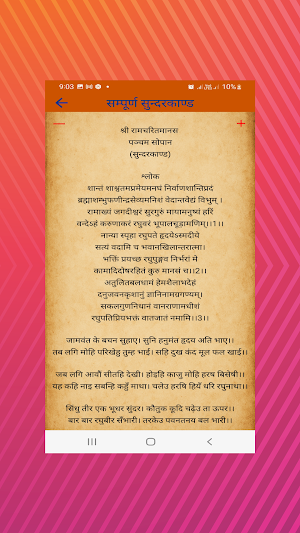 9:03 10%
सम्पूर्ण सुन्दरकाण्ड
श्री रामचरितमानस
पञ्चम सोपान
(सुन्दरकाण्ड)
श्लोक
शान्तं शाश्वतमप्रमेयमनघं निर्वाणशान्तिप्रदं
ब्रह्माशम्भुफणीन्द्रसेव्यमनिशं वेदान्तवेद्यं विभुम् ।
रामाख्यं जगदीश्वरं सुरगुरुं मायामनुष्यं हरिं
वन्देऽहं करुणाकरं रघुवरं भूपालचूड़ामणिम्।।1।।
नान्या स्पृहा रघुपते हृदयेऽस्मदीये
सत्यं वदामि च भवानखिलान्तरात्मा।
भक्तिं प्रयच्छ रघुपुङ्गव निर्भरां मे
कामादिदोषरहितं कुरु मानसं च।।2।।
अतुलितबलधामं हेमशैलाभदेहं
दनुजवनकृशानुं ज्ञानिनामग्रगण्यम्।
सकलगुणनिधानं वानराणामधीशं
रघुपतिप्रियभक्तं वातजातं नमामि।।3।।
जामवंत के बचन सुहाए। सुनि हनुमंत हृदय अति भाए।।
तब लगि मोहि परिखेहु तुम्ह भाई। सहि दुख कंद मूल फल खाई।।
जब लगि आवौं सीतहि देखी। होइहि काजु मोहि हरष बिसेषी।।
यह कहि नाइ सबन्हि कहुँ माथा। चलेउ हरषि हियँ धरि रघुनाथा।।
सिंधु तीर एक भूधर सुंदर। कौतुक कूदि चढ़ेउ ता ऊपर।।
बार बार रघुबीर सँभारी। तरकेउ पवनतनय बल भारी।।